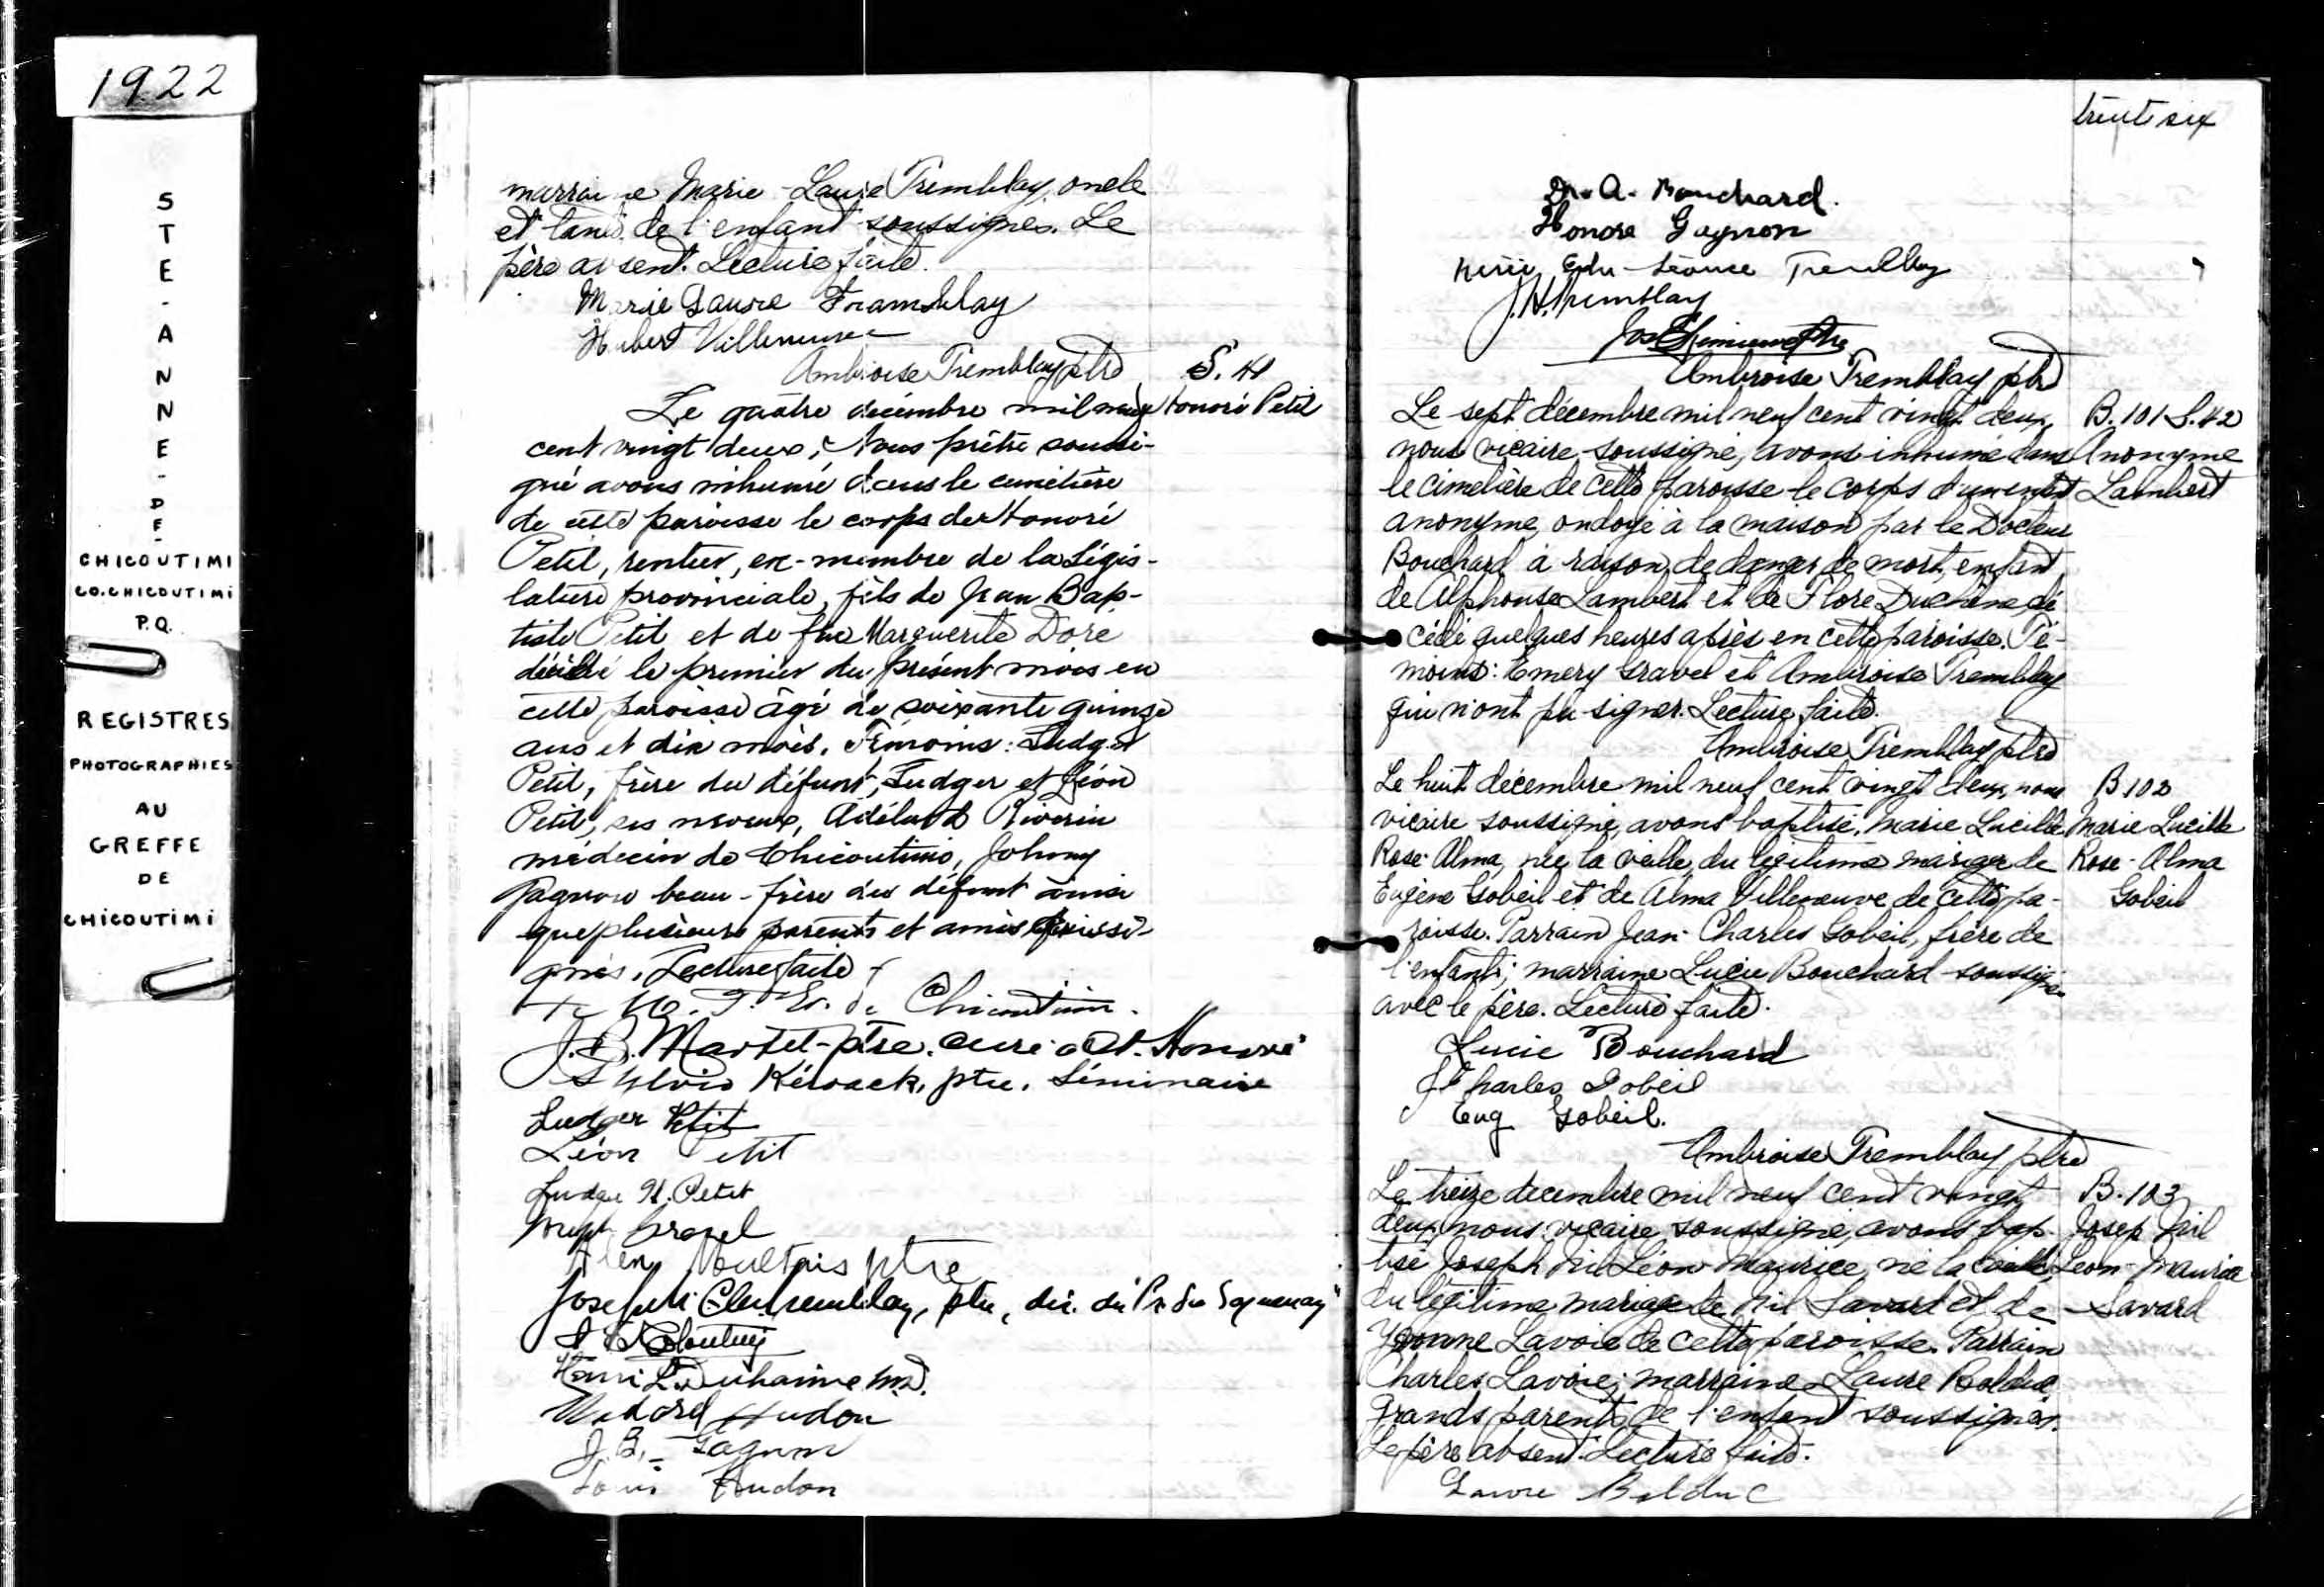 1922
STE-ANNE-DE-
CHICOUTIMI
CO. CHICOUTIMI
P.Q.
REGISTRES
PHOTOGRAPHIES
AU
GREFFE
DE
CHICOUTIMI
marraine Marie-Laure Tremblay, oncle
et tante de l'enfant soussignés. Le
père absent. Lecture faite.
Marie Laure Tramblay
Hubert Villeneuve
Ambroise Tremblay ptre
S. 41
Honoré Petit
Le quatre décembre mil neuf
cent vingt deux, Nous prêtre soussi-
gné avons inhumé dans le cimetière
de cette paroisse le corps de Honoré
Petit, rentier, ex-membre de la Légis-
lature provinciale, fils de Jean Bap-
tiste Petit et de feue Marguerite Dore
décédé le premier du présent mois en
cette paroisse âgé de soixante quinze
ans et dix mois. Témoins: Ludger
Petit, frère du défunt, Ludger et Léon
Petit, ses neveux, Adélard Riverin
médecin de Chicoutimi, Johnny
Gagnon beau-frère du défunt ainsi
que plusieurs parents et amis soussi-
gnés. Lecture faite
de Chicoutimi.
J.B. Martel-ptre. curé St. Honoré
Sylvio Kérouack, ptre. Séminaire
Ludger Petit
Léon Petit
Ludger Petit
Joseph Gravel
ptre
Joseph Tremblay, ptre, dir. du Pr. du Saguenay
Henri L. Duhaime M.D.
Médard Hudon
J.B. Gagnon
Louis Hudon
trente six
Dr. A. Bouchard.
Honore Gagnon
Tremblay
J.H. Tremblay
Ambroise Tremblay ptre
Le sept décembre mil neuf cent vingt deux,
nous vicaire soussigné, avons inhumé dans
le cimetière de cette paroisse le corps d'un enfant
anonyme, ondoyé à la maison par le Docteur
Bouchard à raison de danger de mort, enfant
de Alphonse Lambert et de Flore Duchêne dé
cédé quelques heures après en cette paroisse. Té-
moins: Emery Gravel et Ambroise Tremblay
qui n'ont pu signer. Lecture faite.
Ambroise Tremblay ptre
B. 101 S. 42
Anonyme
Lambert
Le huit décembre mil neuf cent vingt deux, nous
vicaire soussigné, avons baptisé, Marie Lucille
Rose-Alma, née la veille, du légitime mariage de
Eugène Gobeil et de Alma Villeneuve de cette pa-
roisse. Parrain Jean-Charles Gobeil, frère de
l'enfant; marraine Lucie Bouchard soussignés
avec le père. Lecture faite.
B 102
Marie Lucille
Rose-Alma
Gobeil
Lucie Bouchard
J Charles Gobeil
Eug Gobeil.
Ambroise Tremblay ptre
Le treize decembre mil neuf cent vingt
deux, nous vicaire soussigné, avons bap-
tisé Joseph Nil Léon Maurice, né la veille,
du légitime mariage de Nil Savard et de
Yvonne Lavoie de cette paroisse. Parrain
Charles Lavoie; marraine Laure Bolduc
grands parents de l'enfant soussignés.
Le père absent. Lecture faite.
Laure Bolduc
B. 103
Josep Nil
Léon-Maurice
Savard